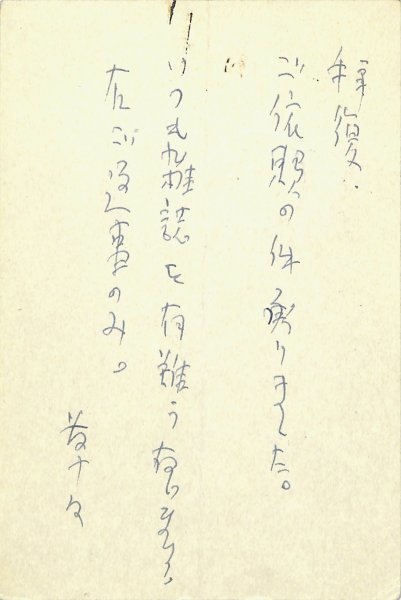 拝復、
ご依頼の件承りました。
いつも雑誌を有難う存じます、
右ご返事のみ。